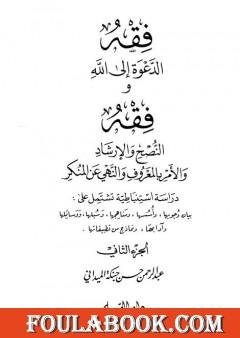 فِقْهُ
الدَّعْوَةِ إِلَى اللَّهِ
وَ
فِقْهُ
النُّصْحِ وَالإِرْشَادِ
وَالأَمْرِ بِالمَعْرُوفِ وَالنَّهْيِ عَنِ المُنْكَرِ
دراسة استنباطية تشتمل على:
بيان وجوبها، وأسسها، ومناهجها، وسبلها، ووسائلها
وآدابها، ونماذج من تطبيقاتها.
الجزء الثاني
عبد الرحمن حسن حبنكة الميداني
FOULABOOK.COM